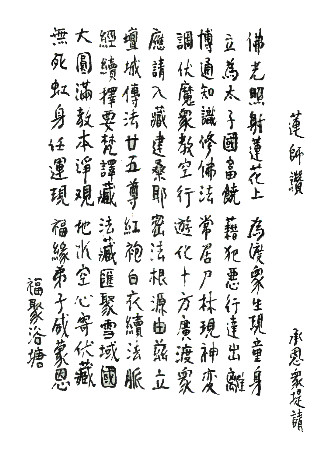 蓮師讚
承恩眾提請
佛光照射蓮花上 為渡眾生現童身
立為太子國富饒 藉犯惡行達出離
博通知識修佛法 常居尸林現神變
調伏魔眾教空行 遊化十方廣渡眾
應請入藏建桑耶 密法根源由茲立
壇城傳法廿五尊 紅袍白衣續法脈
經續擇要梵譯藏 法藏匯聚雪域國
大圓滿教本淨觀 地水空心寄伏藏
無死虹身任運現 福緣弟子咸蒙恩
福聚浴塘